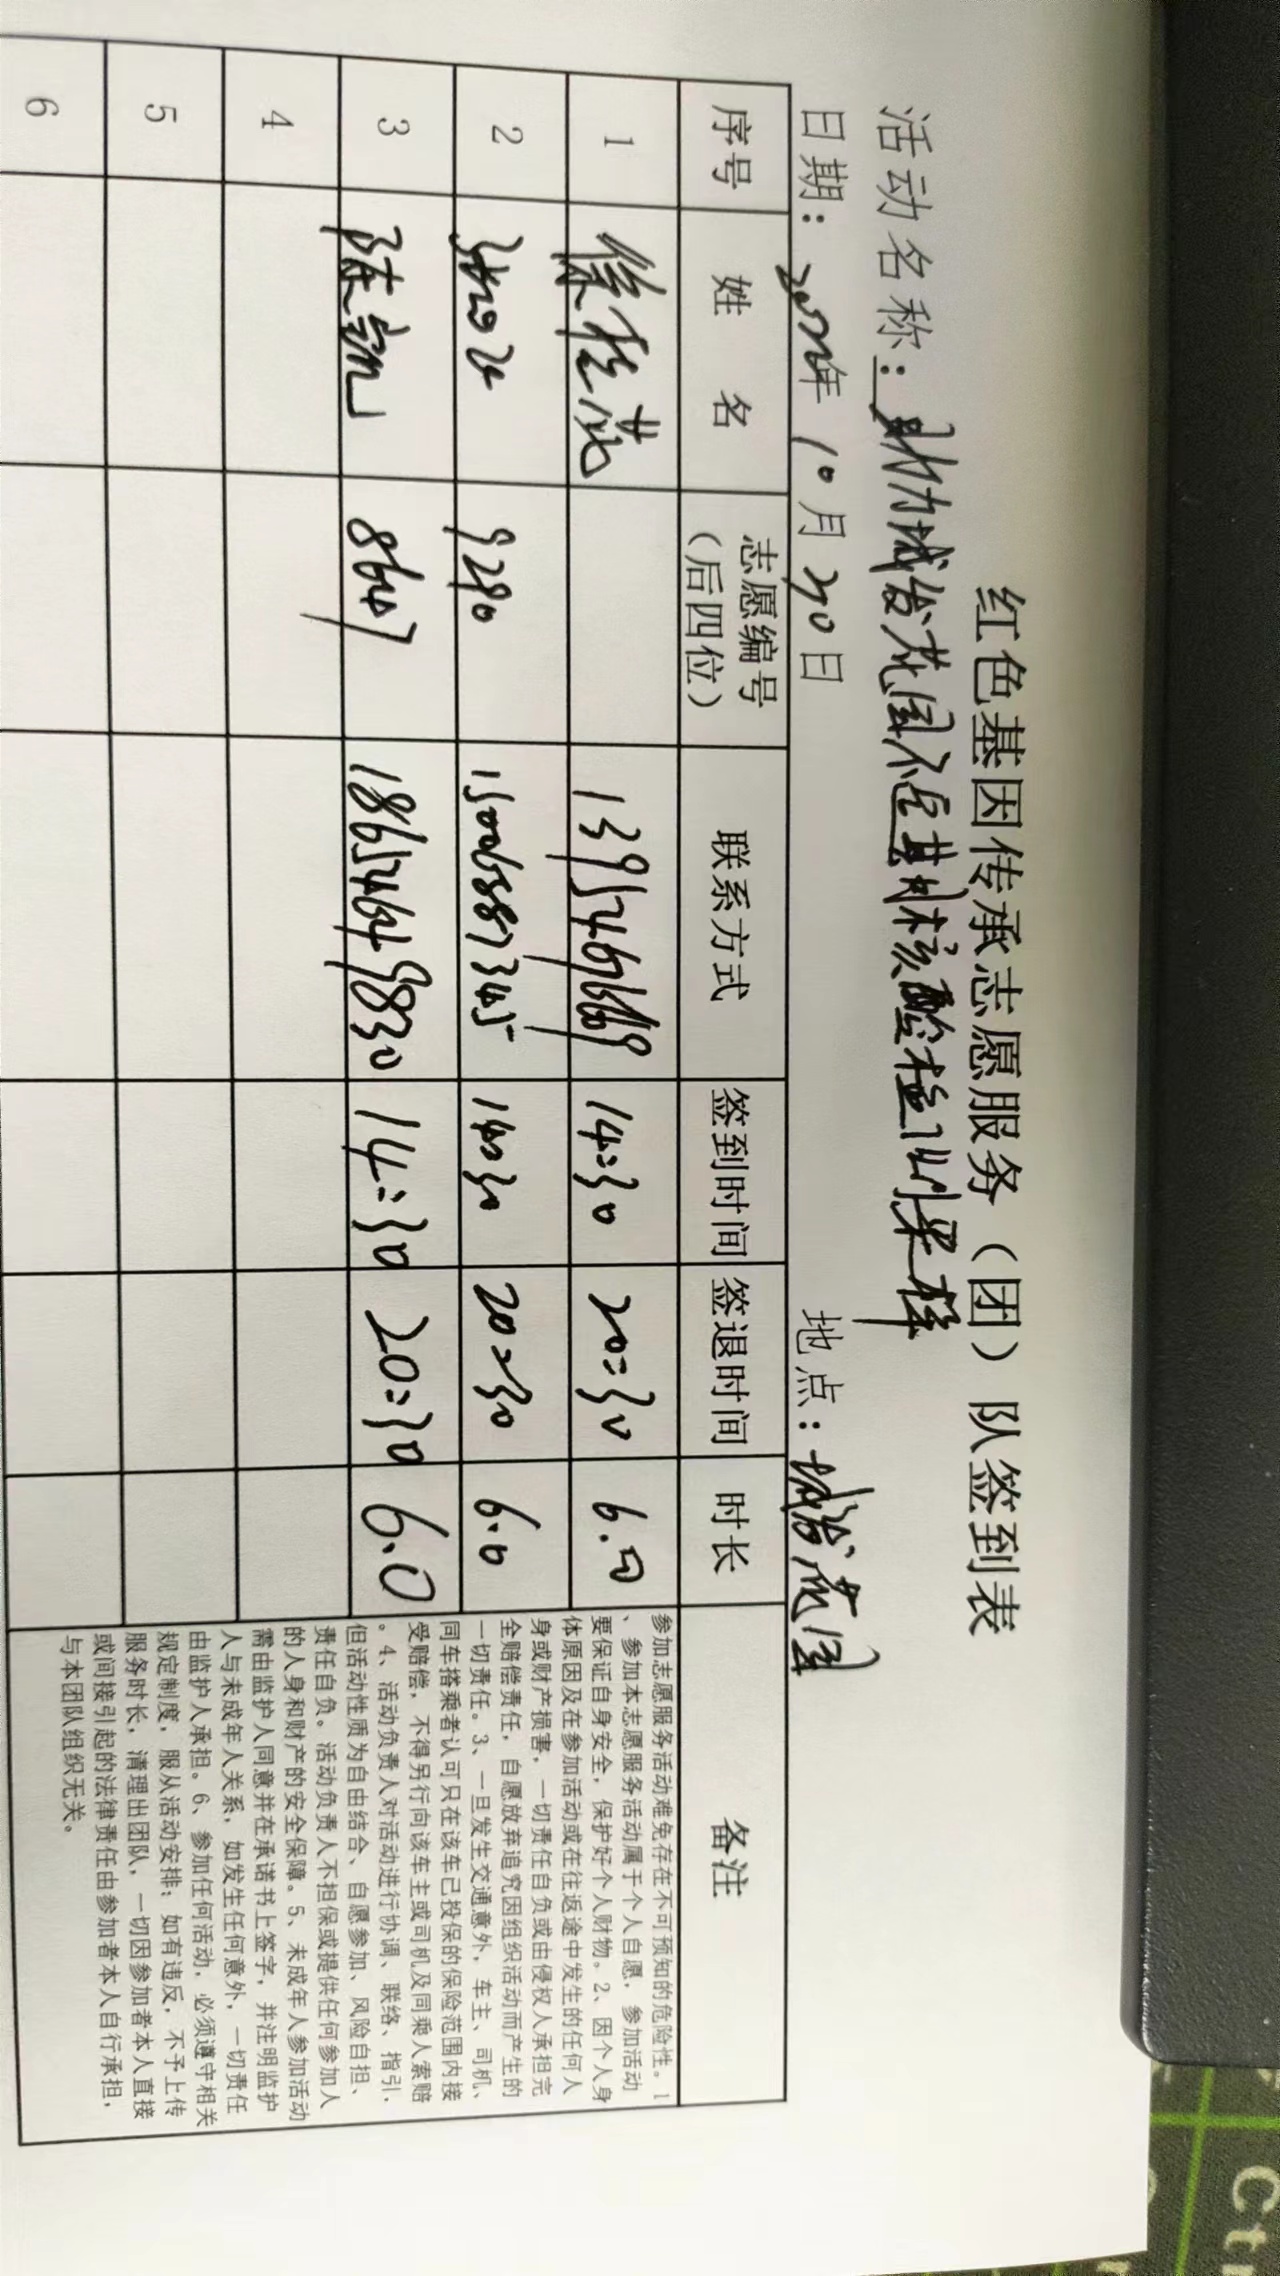 红色基因传承志愿服务（团）队签到表
活动名称：助力城发花园小区其时核酸检测采样
日期：2022年10月20日 地点：城发花园
序号 姓名 志愿编号（后四位） 联系方式 签到时间 签退时间 时长 备注
1 徐桂花 14:30 20:30 6.0
2 9290 15006887345 14:30 20:30 6.0
3 8647 186574649830 14:30 20:30 6.0
4
5
6
参加志愿服务活动难免存在不可预知的危险性。1
、参加本志愿服务活动属于个人自愿，参加活动
要保证自身安全，保护好个人财物。2、因个人身
体原因及在参加活动或在往返途中发生的任何人
身或财产损害，一切责任自负或由侵权人承担完
全赔偿责任，自愿放弃追究因组织活动而产生的
一切责任。3、一旦发生交通意外，车主、司机、
同车搭乘者认可只在该车已投保的保险范围内接
受赔偿，不得另行向该车主或司机及同乘人索赔
。4、活动负责人对活动进行协调、联络、指引，
但活动性质为自由结合、自愿参加、风险自担、
责任自负。活动负责人不担保或提供任何参加人
的人身和财产的安全保障。5、未成年人参加活动
需由监护人同意并在承诺书上签字，并注明监护
人与未成年人关系，如发生任何意外，一切责任
由监护人承担。6、参加任何活动，必须遵守相关
规定制度，服从活动安排；如有违反，不予上传
服务时长，清理出团队，一切因参加者本人直接
或间接引起的法律责任由参加者本人自行承担，
与本团队组织无关。
Ct